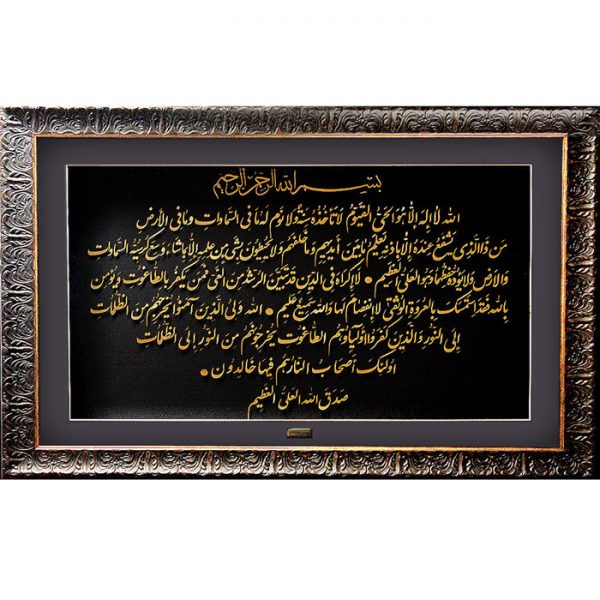 بسم الله الرحمن الرحیم
الله لا إله إلا هو الحی القیوم لا تأخذه سنة ولا نوم له ما فی السماوات وما فی الأرض
من ذا الذی یشفع عنده إلا بإذنه یعلم ما بین أیدیهم وما خلفهم ولا یحیطون بشیء من علمه إلا بما شاء وسع کرسیه السماوات
والأرض ولا یؤده حفظهما وهو العلی العظیم • لا إکراه فی الدین قد تبین الرشد من الغی فمن یکفر بالطاغوت ویؤمن
بالله فقد استمسک بالعروة الوثقی لا انفصام لها والله سمیع علیم • الله ولی الذین آمنوا یخرجهم من الظلمات
إلی النور والذین کفروا أولیاؤهم الطاغوت یخرجونهم من النور إلی الظلمات
اولئک أصحاب النار هم فیها خالدون •
صدق الله العلی العظیم